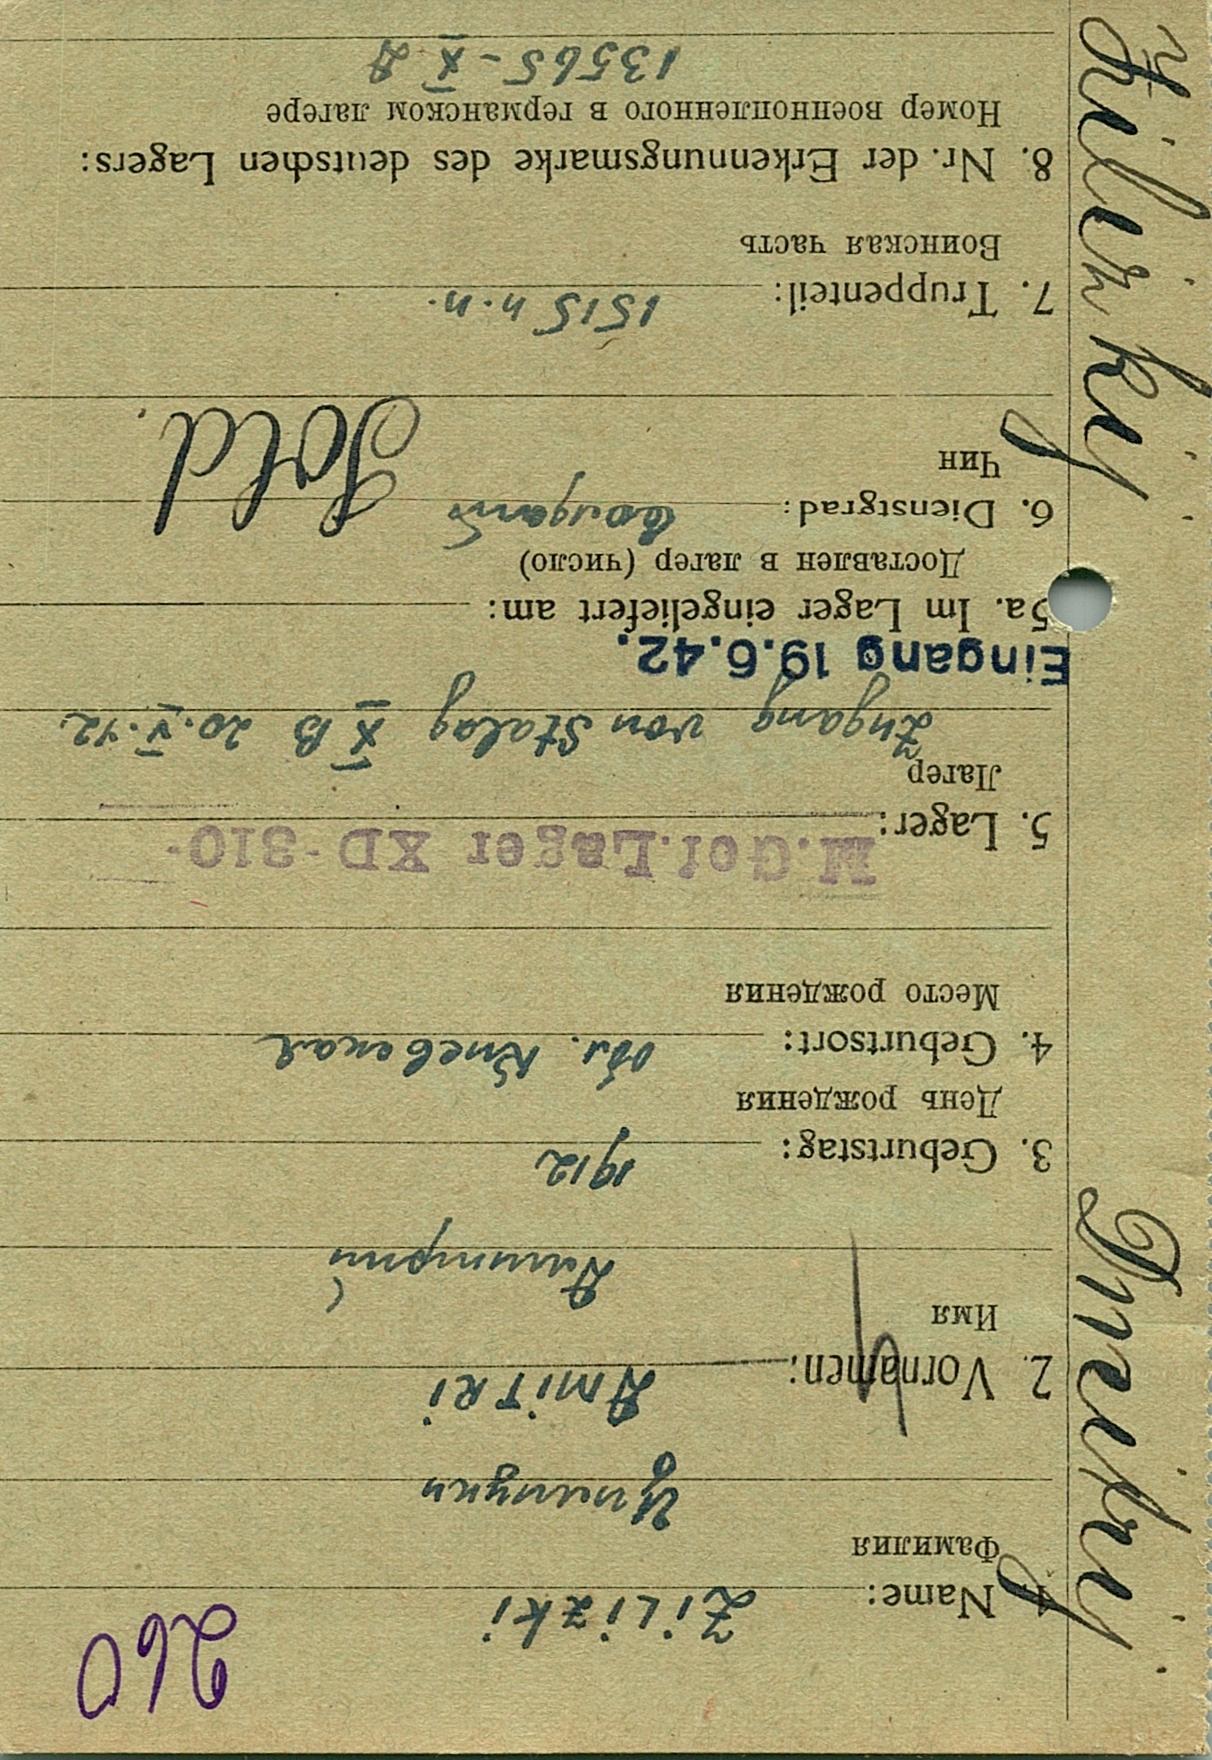 260
1. Name: ZiLizki
Фамилия
2. Vornamen: DMiTRi
Имя
Дмитрий
3. Geburtstag: 1912
День рождения
4. Geburtsort: обл. Киевская
Место рождения
M.Gef.Lager XD-310-
5. Lager:
Лагерь
Zugang von Stalag X B 20.V.42
Eingang 19.6.42.
5a. Im Lager eingeliefert am:
Доставлен в лагер (число)
6. Dienstgrad: солдат Sold.
Чин
7. Truppenteil: 1515 п.п.
Воинская часть
8. Nr. der Erkennungsmarke des deutschen Lagers:
Номер военнопленного в германском лагере
13565-X D
Dmitrij
Zilizkij